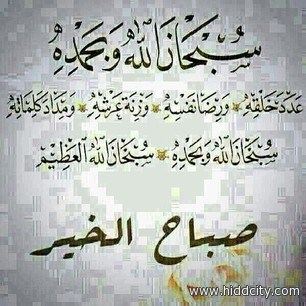 سُبْحَانَ اللهِ وَبِحَمْدِهِ
عَدَدَ خَلْقِهِ وَرِضَا نَفْسِهِ وَزِنَةَ عَرْشِهِ وَمِدَادَ كَلِمَاتِهِ
سُبْحَانَ اللهِ وَبِحَمْدِهِ سُبْحَانَ اللهِ الْعَظِيمِ
صباح الخير
www.hiddcity.com